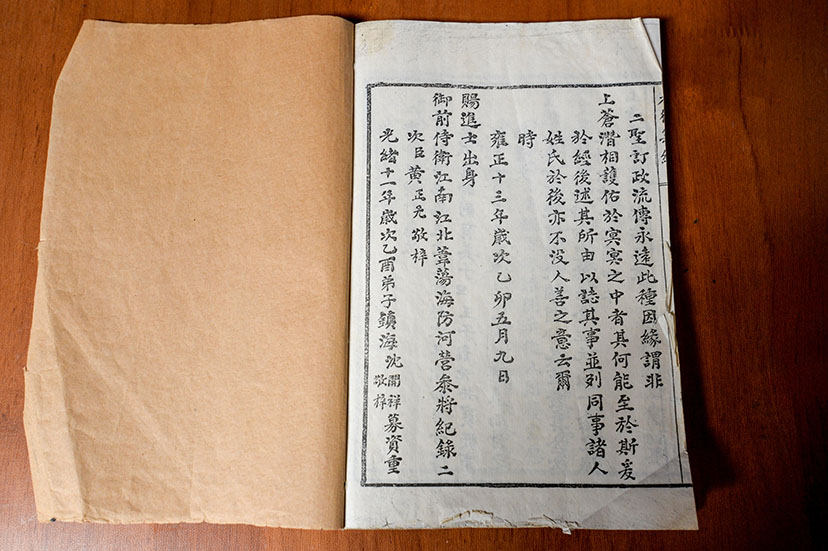 二聖訂政流傳永遠此種因緣謂非
上蒼潛相護佑於冥冥之中者其何能至於斯爰
於經後述其所由以誌其事並列同事諸人
姓氏於後亦不没人善之意云爾
時
雍正十三年歲次乙卯五月九日
賜進士出身
御前侍衛江南江北葦蕩海防河營叅將紀錄二
次臣黄正元敬梓
光緒十一年歲次乙酉弟子鎮海沈開祥募資重
敬梓